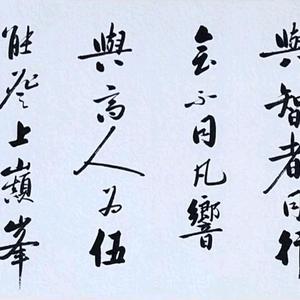 與智者同行
會不同凡響
與高人為伍
能登上巔峯